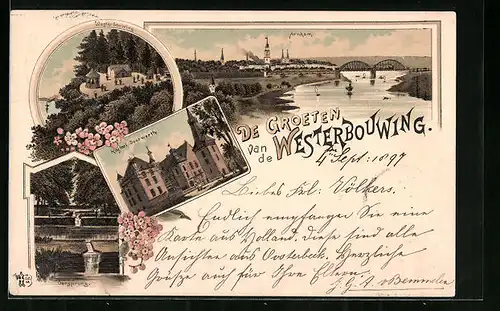 Westerbouwing
Arnhem
Kasteel Doorwerth
DE GROETEN
van de WESTERBOUWING.
4 Sept: 1897
Liebes Frl: Völkers.
Endlich empfangen Sie eine
Karte aus Holland, diese sind alle
Ansichten aus Oosterbeek. Herzliche
Grüße auch für Ihre Eltern.
J. G. A. v Bemmelen